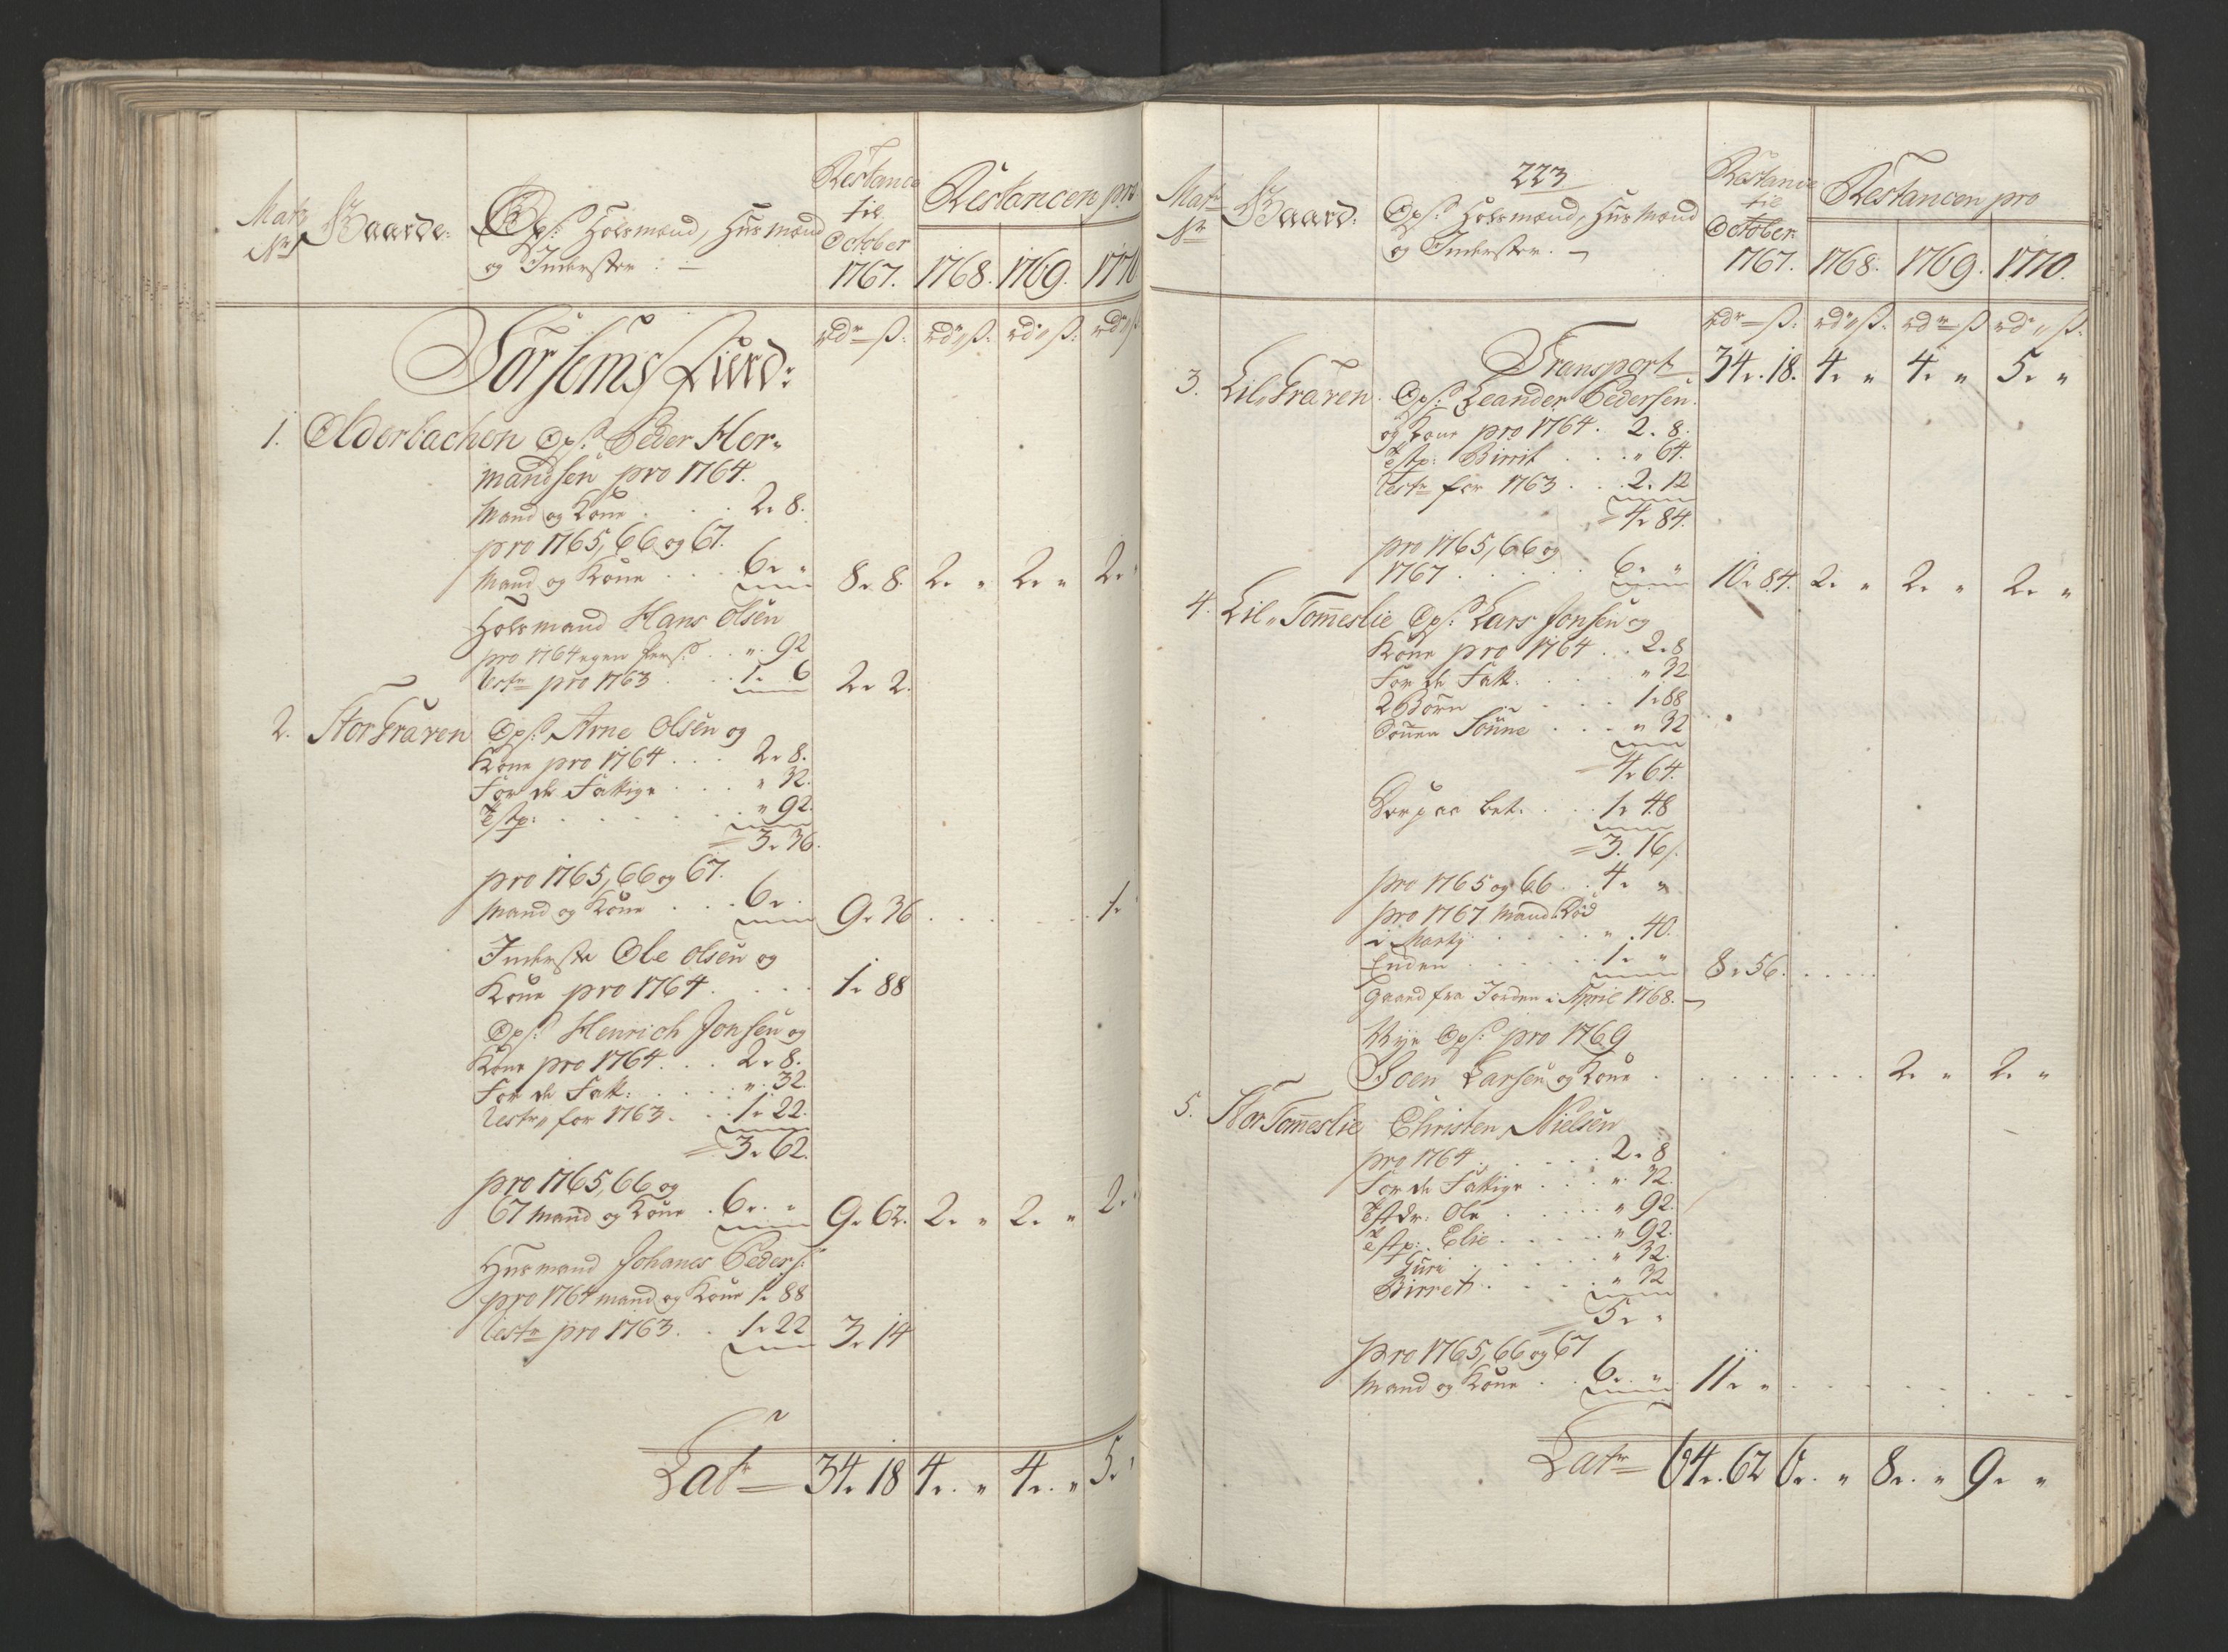 Matr Nr
Gaarde:
Ops: Holsmænd, Husmænd
og Inderster: —
Restance
til
October
1767.
Restancen pro
1768. 1769. 1770
rdr — ß: rdr „ ß. rdr „ ß: rdr „ ß
Sørsems Fierd:
1. Olderbachen Ops: Peder Her-
mandsen pro 1764.
Mand og Kone . . . 2. 8.
pro 1765, 66 og 67.
Mand og Kone . . . 6. „ 8. 8. 2. „ 2. „ 2.
Holsmand Hans Olsen
pro 1764 egen Pers: . . „. 92
Restr pro 1763 . . 1. 6 2. 2.
2. Stor Graven Ops: Arne Olsen og
Kone pro 1764 . . . 2. 8.
For de Fattige . . . „ 32.
Tstp: . . . . . „ 92.
= 3. 36.
pro 1765, 66 og 67.
Mand og Kone . . . 6. . 9. 36 . . . . 1.
Inderste Ole Olsen og
Kone pro 1764 . . . 1. 88
Ops: Henrich Jonsen og
Kone pro 1764 . . . 2. 8.
For de Fatt: . . . „. 32.
Restr for 1763 . . 1. 22.
= 3. 62.
pro 1765, 66 og
67 Mand og Kone . 6. „ 9. 62. 2. „ 2. „ 2.
Husmand Johanes Peders:
pro 1764 mand og Kone 1. 88
Restr pro 1763 . . 1. 22 3. 14
Latr = 34. 18 4. „ 4. „ 5.
223
Matr Nr
Gaard:
Ops: Holsmænd, Husmænd
og Inderster. —
Restance
til
October:
1767.
Restancen pro
1768. 1769. 1770.
rdr — ß: rdr „ ß. rdr — ß rdr „ ß.
Transport 34. 18. 4. „ 4. „ 5. „
3. Lil „ Graven. Ops: Leander Pedersen.
og Kone pro 1764. 2. 8.
Tstp: Birrit . . . „ 64.
Restr for 1763 . . . 2. 12
= 4. 84.
pro 1765, 66 og
1767 . . . . . 6. „ 10. 84. 2. „ 2. „ 2. „
4. Lil „ Tom̄eslie Ops: Lars Jonsen og
Kone pro 1764 . . 2. 8
For de Fatt. . . . „ 32
2 Børn . . . . 1. 88
Sønne . . . „ 32
= 4. 64.
Derpaa bet. . . . 1. 48
= 3. 16.
pro 1765 og 66 . . 4. „
pro 1767 Mand Død
i Marty . . . . „ . 40.
Enken . . . . . 1. „ 8. 56. . . . .
Gaaed fra Jorden i April 1768. —
Nye Ops: pro 1769
Joen Larsen og Kone . . . . . . . 2. „ 2. „
5. Stor Tom̄eslie Christen Nielsen
pro 1764 . . . . . 2. 8
For de Fattige . . . „. 32.
Tstdr: Ole . . . . „ 92.
Tstp: Elie . . . . . „ 92.
Guri . . . . . „ 32.
Birret . . . . . „ 32
5. „
pro 1765, 66 og 67
Mand og Kone . . 6. „ 11. „ . . . . . . .
Latr = 64. 62 6. „ 8. „ 9. „